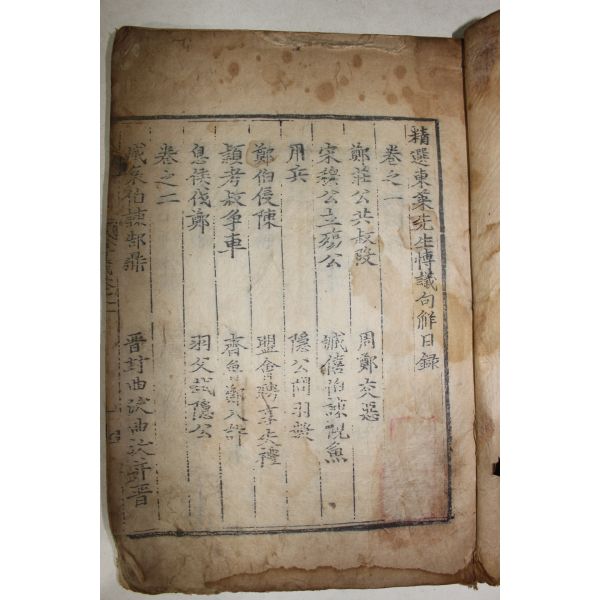 精選東萊先生愽議句解目録
卷之一
鄭莊公共叔段 周鄭交惡
宋穆公立殤公 臧僖伯諫觀魚
用兵 隱公問羽數
鄭伯侵陳 盟會聘享失禮
頴考叔争車 齊魯鄭入許
息侯伐鄭 羽父弑隱公
卷之二
臧哀伯諫郜鼎 晋封曲沃曲沃并晋